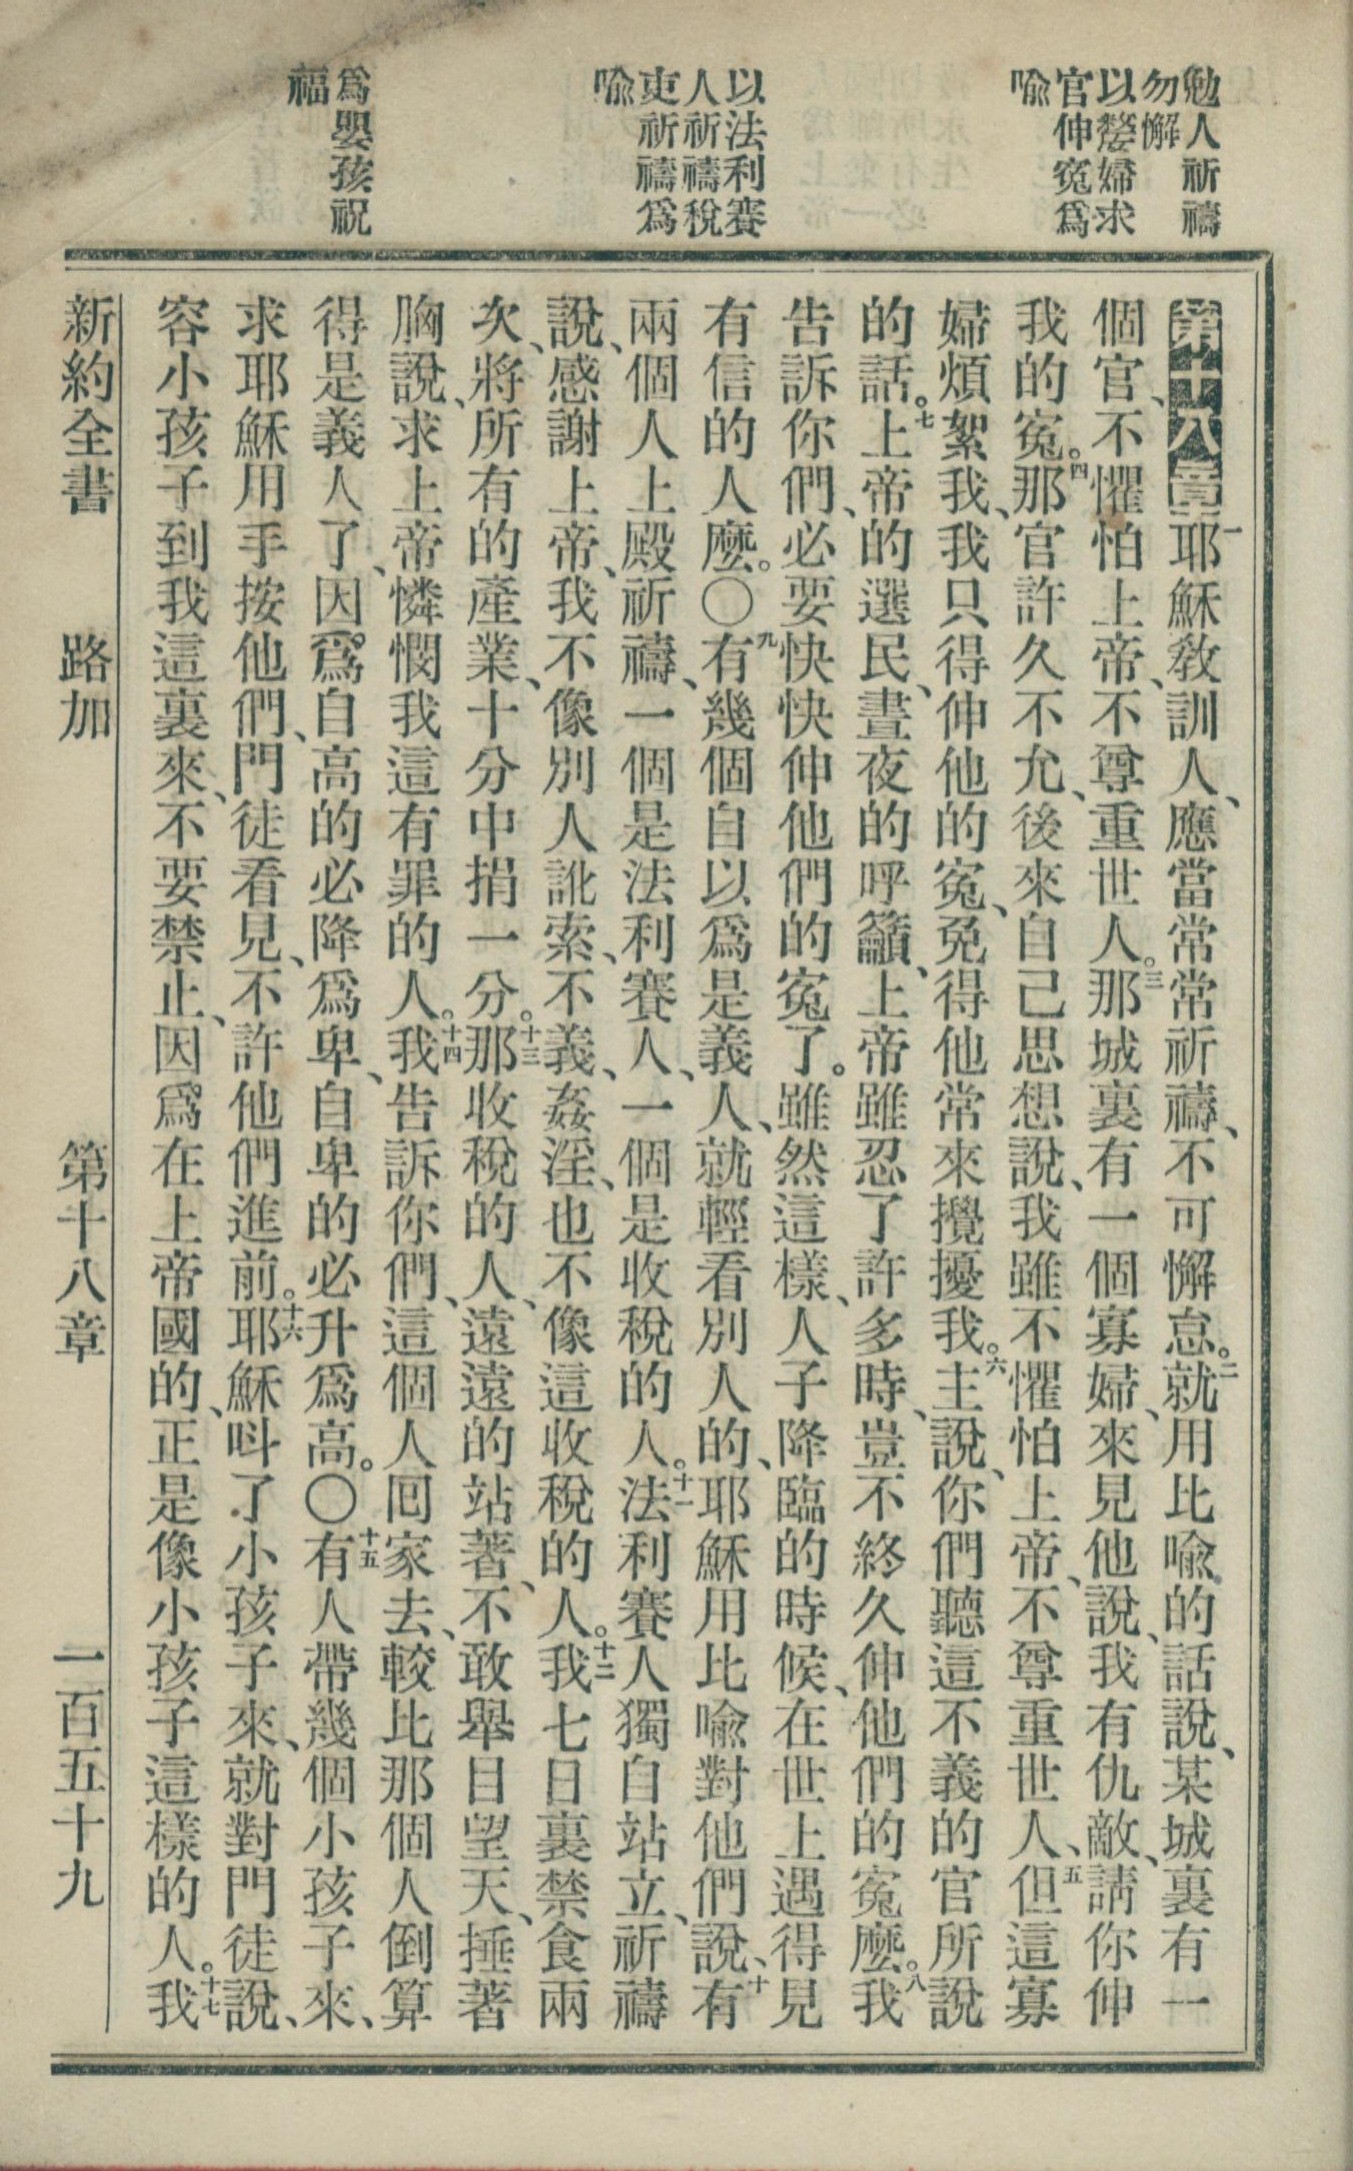 勉人祈禱
勿懈
以嫠婦求
官伸冤爲
喩
以法利賽
人祈禱稅
吏祈禱爲
喩
爲嬰孩祝
福
第十八章一耶穌敎訓人、應當常常祈禱、不可懈怠。二就用比喩的話說、某城裏有一
個官、不懼怕上帝、不尊重世人。三那城裏有一個寡婦、來見他說、我有仇敵、請你伸
我的冤。四那官許久不允、後來自己思想說、我雖不懼怕上帝、不尊重世人、五但這寡
婦煩絮我、我只得伸他的冤、免得他常來攪擾我。六主說、你們聽這不義的官所說
的話。七上帝的選民、晝夜的呼籲、上帝雖忍了許多時、豈不終久伸他們的冤麽。八我
告訴你們、必要快快伸他們的冤了。雖然這樣、人子降臨的時候、在世上遇得見
有信的人麽。〇九有幾個自以爲是義人、就輕看別人的、耶穌用比喩對他們說、十有
兩個人上殿祈禱、一個是法利賽人、一個是收稅的人。十一法利賽人獨自站立、祈禱
說、感謝上帝、我不像別人訛索、不義、姦淫、也不像這收稅的人。十二我七日裏禁食兩
次、將所有的產業、十分中捐一分。十三那收稅的人、遠遠的站著、不敢舉目望天、捶著
胸說、求上帝憐憫我這有罪的人。十四我告訴你們、這個人回家去、較比那個人倒算
得是義人了、因爲自高的必降爲卑、自卑的必升爲高。〇十五有人帶幾個小孩子來、
求耶穌用手按他們、門徒看見、不許他們進前。十六耶穌呌了小孩子來、就對門徒說、
容小孩子到我這裏來、不要禁止、因爲在上帝國的、正是像小孩子這樣的人。十七我
新約全書 路加 第十八章 一百五十九